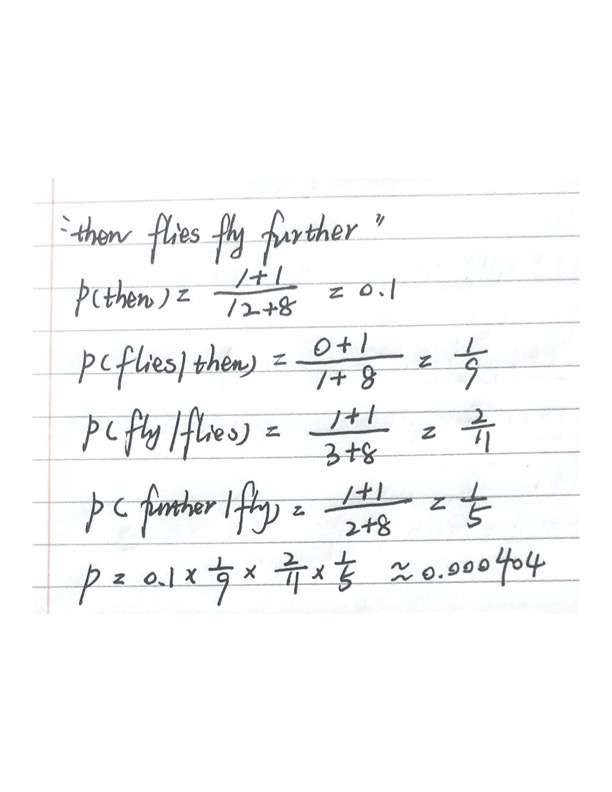 "then flies fly further"
P(then) = \frac{1+1}{12+8} = 0.1
P(flies|then) = \frac{0+1}{1+8} = \frac{1}{9}
P(fly|flies) = \frac{1+1}{3+8} = \frac{2}{11}
P(further|fly) = \frac{1+1}{2+8} = \frac{1}{5}
P = 0.1 × \frac{1}{9} × \frac{2}{11} × \frac{1}{5} ≈ 0.000404